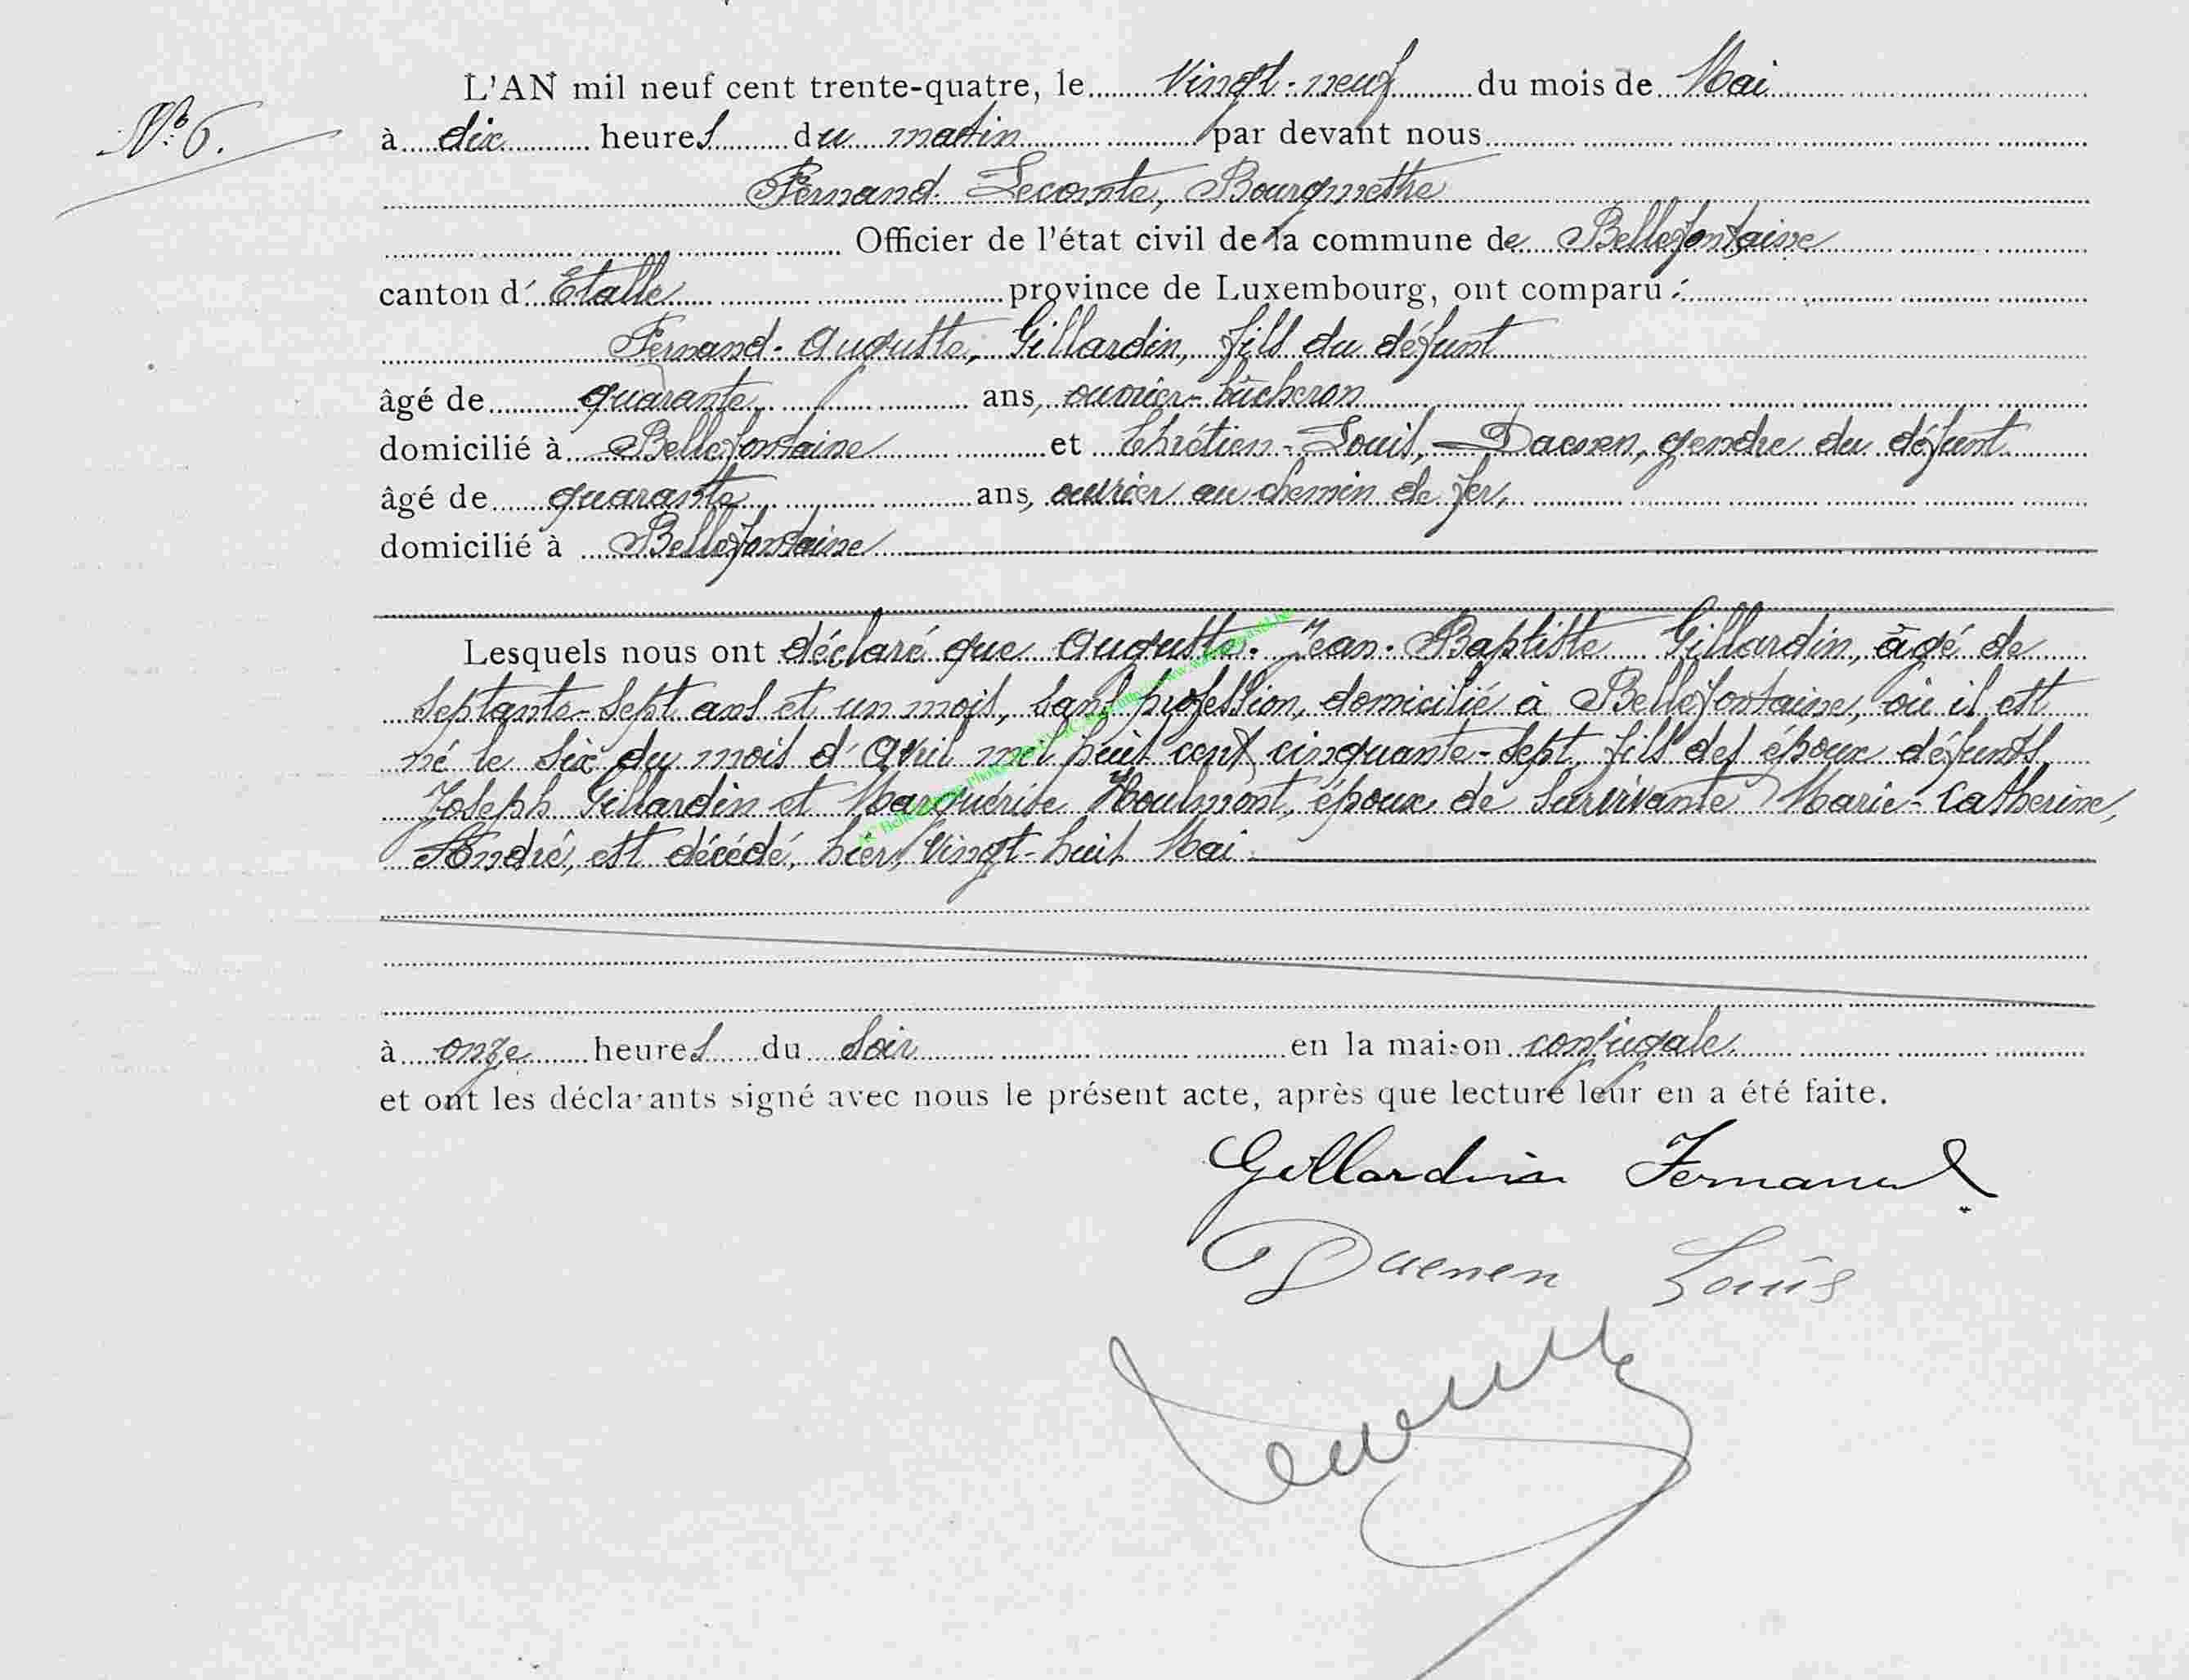 L'AN mil neuf cent trente-quatre, le Vingt-neuf du mois de Mai
N° 6.
à dix heures du matin par devant nous
Fernand Lecomte, Bourgmestre
Officier de l'état civil de la commune de Bellefontaine
canton d'Etalle province de Luxembourg, ont comparu :
Fernand-Auguste, Gillardin, fils du défunt
âgé de quarante ans, ouvrier-bûcheron
domicilié à Bellefontaine et Chrétien-Louis, Daenen, gendre du défunt
âgé de quarante ans, ouvrier au chemin de fer,
domicilié à Bellefontaine
Lesquels nous ont déclaré que Auguste-Jean-Baptiste Gillardin, âgé de
septante-sept ans et un mois, sans profession, domicilié à Bellefontaine, où il est
né le six du mois d'Avril mil huit cent cinquante-sept, fils des époux défunts,
Joseph Gillardin et Marguérite Houlmont, époux de survivante Marie-Catherine,
André, est décédé, hier, vingt-huit Mai
à onze heures du soir en la maison conjugale.
et ont les déclarants signé avec nous le présent acte, après que lecture leur en a été faite.
Gillardin Fernand
Daenen Louis